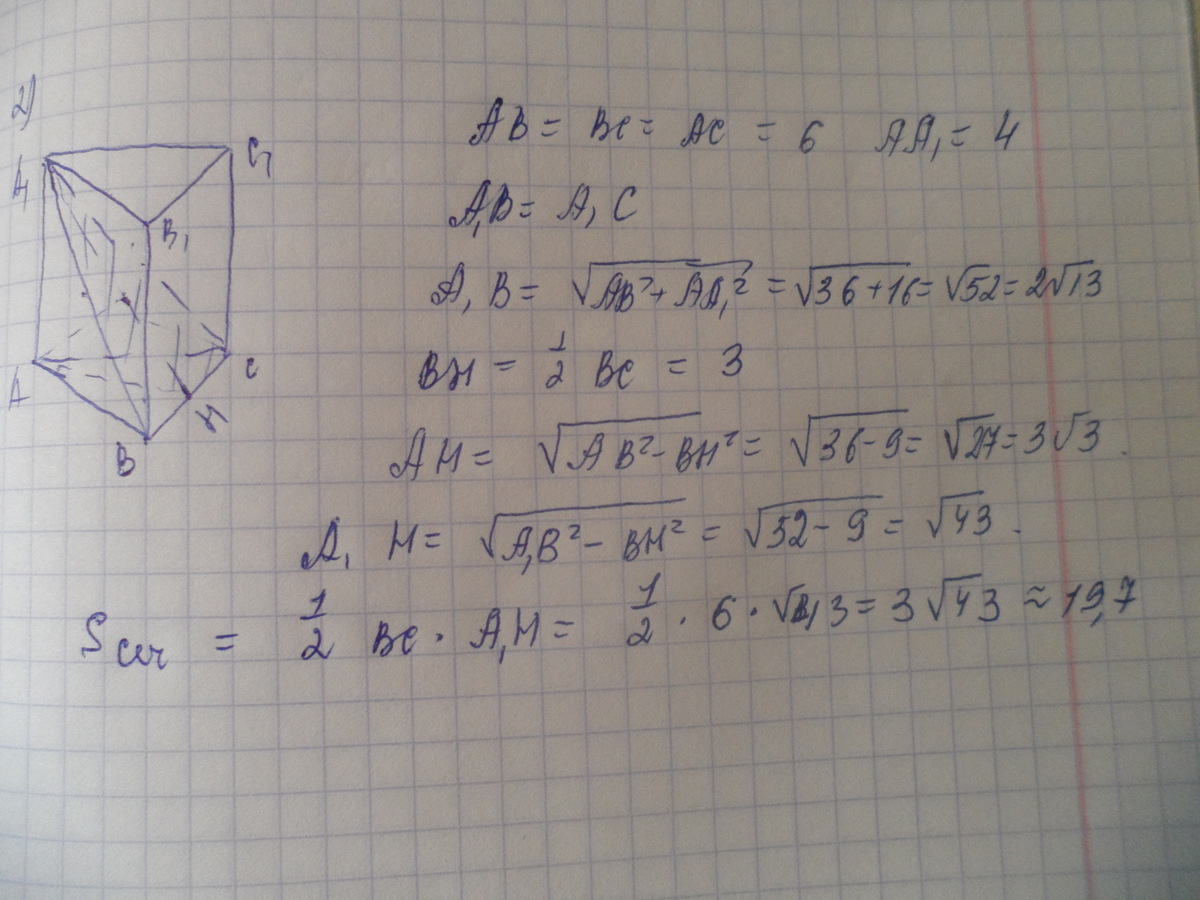 2)
A₁ C₁ B₁ A C B H
AB = BC = AC = 6 AA₁ = 4
A₁B = A₁C
A₁B = √(AB² + AA₁²) = √(36 + 16) = √52 = 2√13
BH = 1/2 BC = 3
AH = √(AB² - BH²) = √(36 - 9) = √27 = 3√3.
A₁H = √(A₁B² - BH²) = √(52 - 9) = √43.
Sсеч = 1/2 BC · A₁H = 1/2 · 6 · √43 = 3√43 ≈ 19,7